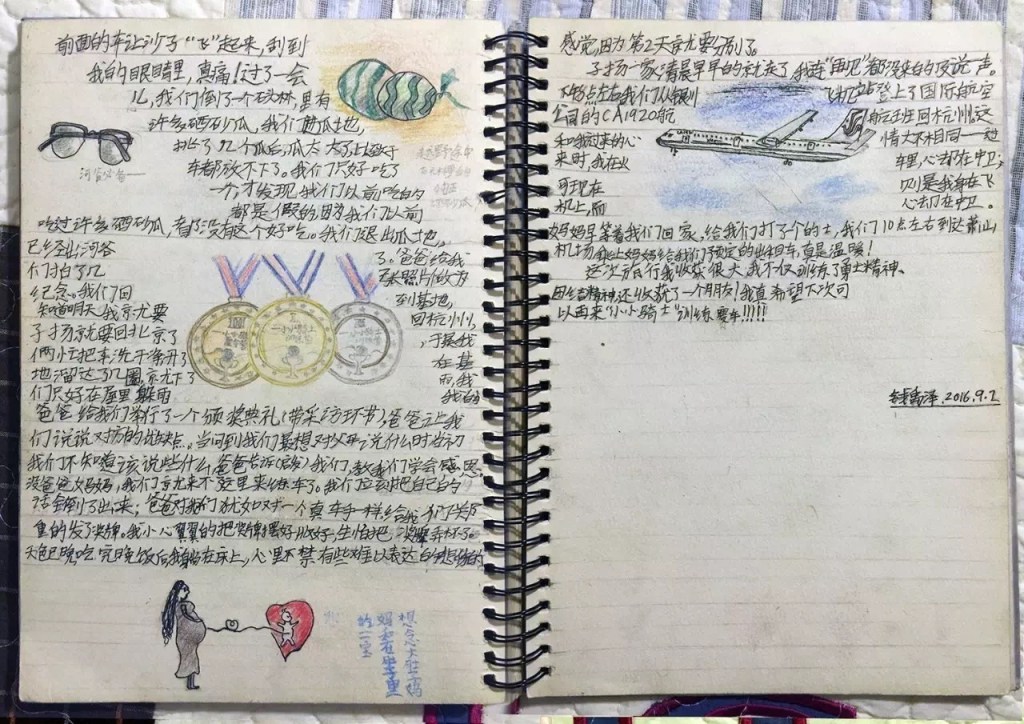 前面的车让沙子“飞”起来,刮到
我的眼睛里,真痛!过了一会
儿,我们到了一个砂林,里有
许多硒砂瓜,我们
了几个瓜后,瓜太大了
车都放不下了。我们只好吃了
一个,才发现,我们以前吃的
都是假的,因为我们以前
吃过许多硒砂瓜,都没有这个好吃。我们退出瓜地,
已经到河谷
了。爸爸给我
们拍了几
张照片做为
纪念。我们回
到基地,
知道明天,我就要
回杭州,
子扬就要回北京了
于是我
俩忙把车洗干净,开了
在基
地溜达了几圈,就下了
雨,我
们只好在屋里躲雨
我的
爸爸给我们举行了一个颁奖典礼(带采访环节),爸爸让我
们说说对方的优缺点。当问到我们最想对父母说什么时,当初
我们不知道应该说些什么,爸爸告诉我们,教我们学会感恩。
没爸爸妈妈,我们就来不了这里来练车了。我们应该把自己的
话全倒了出来,爸爸对我们犹如对一个真车手一样,给我们郑
重的发了奖牌。我小心翼翼的把奖牌摆好收好,生怕把奖牌弄坏了。
天色已晚,吃完晚饭后,我躺在床上,心里不禁有些难以表达的
想念大肚妈
妈和在肚子里
的二宝
感觉,因为第2天就要分别了。
子扬一家清晨早早的就走了,我连“再见”都没来的及说一声。
下午6点左右,我们从银川
飞机站登上了国际航空
公司的CA1920航
航班回杭州,这
和我过来的心
情大不相同——过
来时,我在火
车里,心却在中卫;
可现在
则是我身在飞
机上,而
心却在中卫。
妈妈早等着我们回家,给我们打了个的士,我们10点左右到达萧山
机场,就上妈妈给我们预定的出租车,真是温暖!
这次旅行我收获很大,我不仅训练了勇士精神、
团结精神,还收获了一个朋友!我真希望下次可
以再来“小小骑士”训练赛车!!!!!
2016.9.2